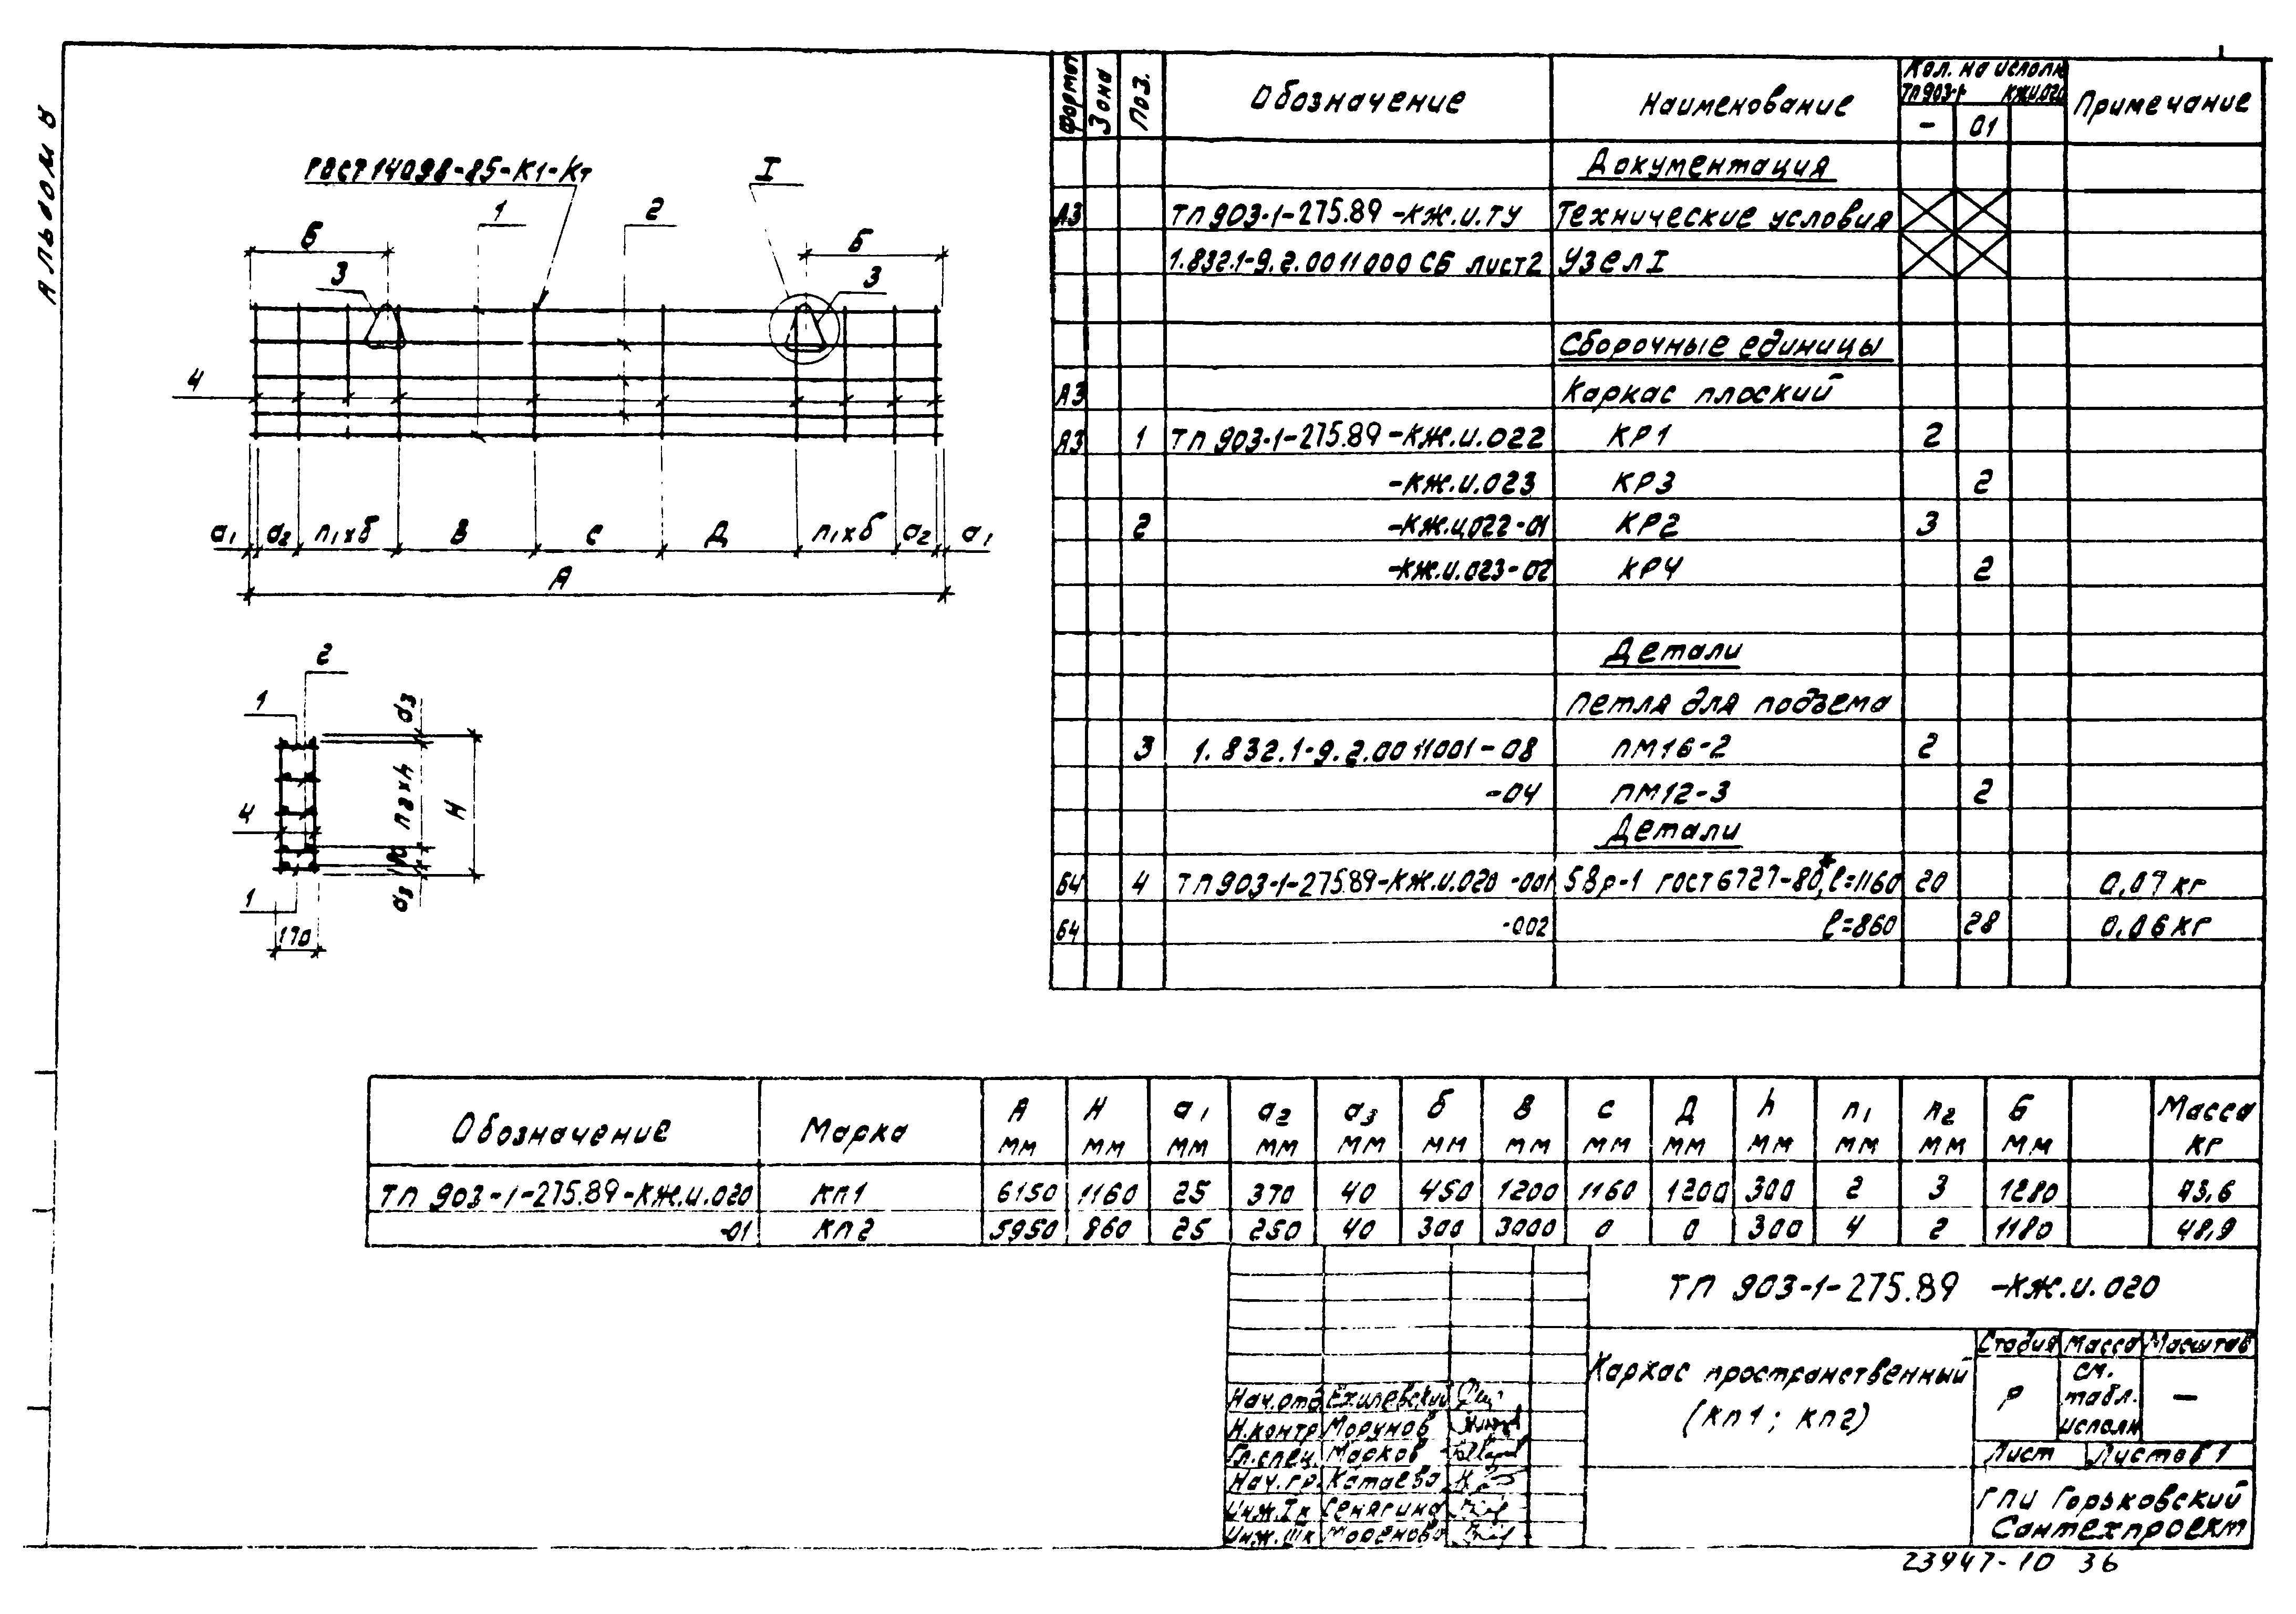 Альбом 8
ГОСТ 14098-85-К1-Кт
I
1
2
Б
Б
3
3
4
а1 а2 n1хб В С Д n1хб а2 а1
А
2
1
а3
n2хh
Н
4
а3
1
170
Формат Зона Поз. Обозначение Наименование Кол. на исполн. Примечание
ТП 903-1 КЖ.И.020
- 01
Документация
А3 ТП 903-1-275.89-КЖ.И.ТУ Технические условия
1.832.1-9.2.0011000 СБ лист 2 Узел I
Сборочные единицы
А3 Каркас плоский
А3 1 ТП 903-1-275.89-КЖ.И.022 КР1 2
-КЖ.И.023 КР3 2
2 -КЖ.И.022-01 КР2 3
-КЖ.И.023-02 КР4 2
Детали
Петля для подъема
3 1.832.1-9.2.0011001-08 ПМ16-2 2
-04 ПМ12-3 2
Детали
Б4 4 ТП 903-1-275.89-КЖ.И.020-001 5Вр-1 ГОСТ 6727-80*, ℓ=1160 20 0,07 кг
Б4 -002 ℓ=860 28 0,06 кг
Обозначение Марка А мм Н мм а1 мм а2 мм а3 мм б мм В мм С мм Д мм h мм n1 мм n2 мм Б мм Масса кг
ТП 903-1-275.89-КЖ.И.020 КП1 6150 1160 25 370 40 450 1200 1160 1200 300 2 3 1280 43,6
-01 КП2 5950 860 25 250 40 300 3000 0 0 300 4 2 1180 48,9
ТП 903-1-275.89 -КЖ.И.020
Каркас пространственный
(КП1; КП2)
Стадия Масса Масштаб
Р см. табл. исполн. —
Лист Листов 1
Нач.отд. Ехилевский
Н.контр. Морунов
Гл.спец. Марков
Нач.гр. Катаева
Инж.Iк Сенягина
Инж.IIIк
ГПИ Горьковский
Сантехпроект
23947-10 36